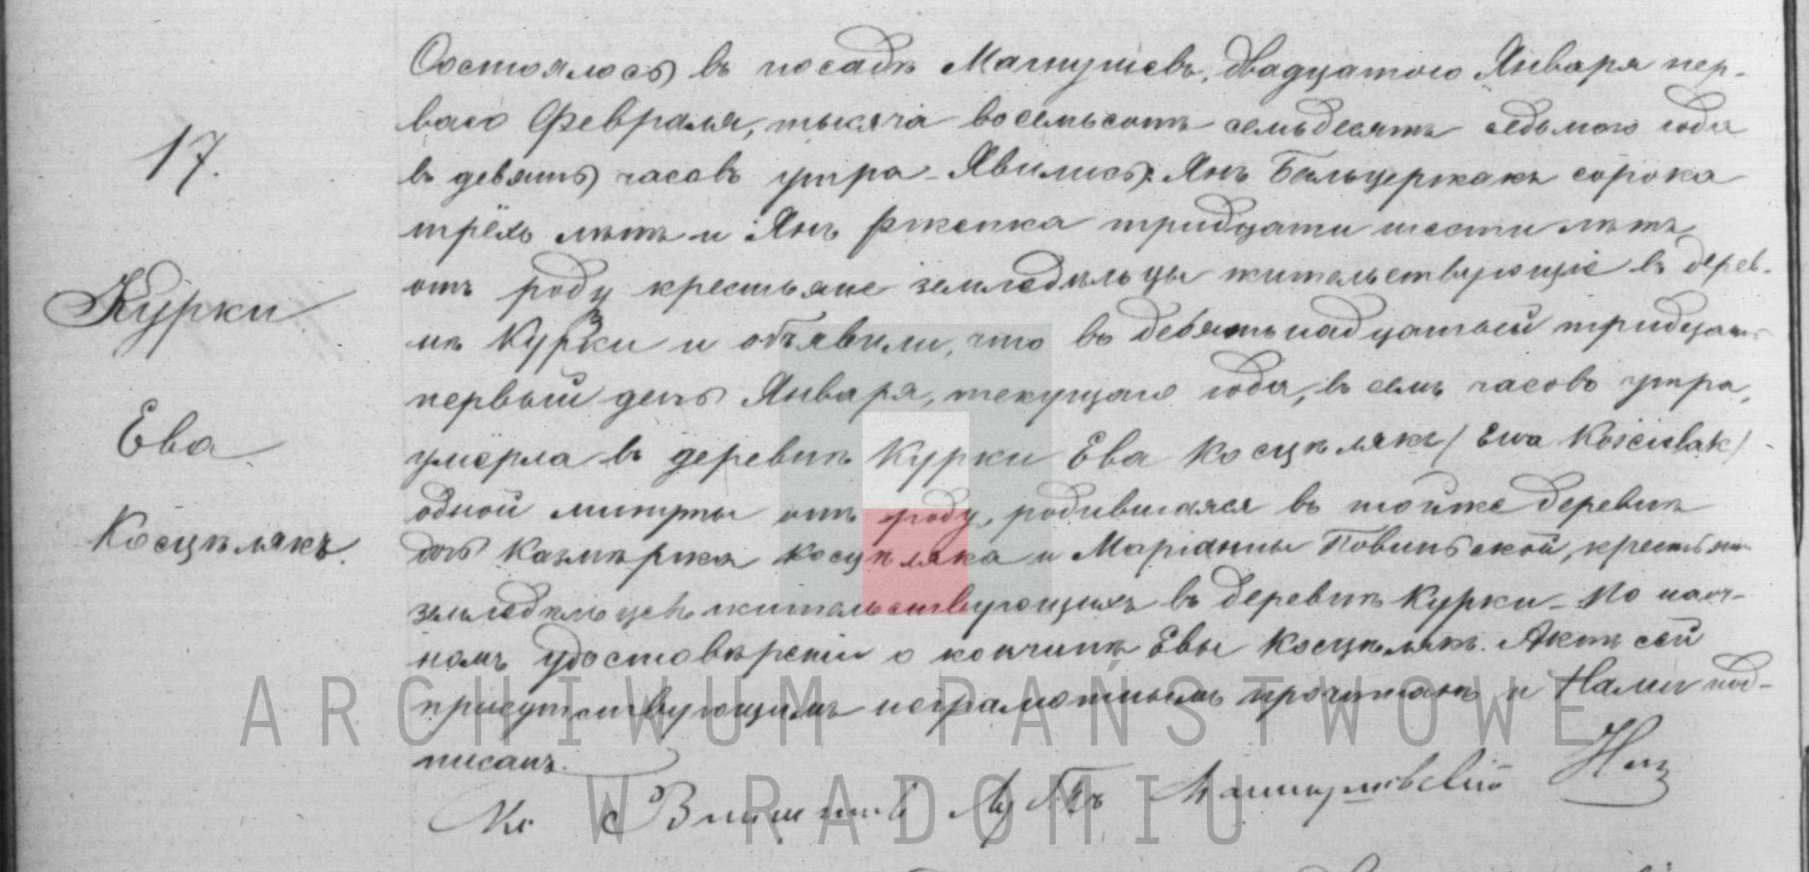 17.
Курки
Ева
Косцѣлякъ.
Состоялось въ посадѣ Магнушевѣ, двадцатого Января пер-
ваго Февраля, тысяча восемьсотъ семьдесятъ седьмого года
въ девять часовъ утра. Явились: Янъ Бальцержакъ сорока
трёхъ лѣтъ и Янъ Ржепка тридцати шести лѣтъ
отъ роду крестьяне земледѣльцы жительствующіе въ дерев-
нѣ Курки и объявили, что въ девятьнадцатый тридцать
первый день Января, текущаго года, въ семь часовъ утра,
умерла въ деревнѣ Курки Ева Косцѣлякъ /Ewa Kościelak/
одной минуты отъ роду, родившаяся въ тойже деревнѣ
дочь Казмѣржа Косцѣляка и Маріанны Повинской, крестьянъ
земледѣльцевъ жительствующихъ въ деревнѣ Курки. По наоч-
номъ удостовѣреніи о кончинѣ Евы Косцѣлякъ. Актъ сей
присутствующимъ неграмотнымъ прочитанъ и Нами под-
писанъ.
ARCHIWUM PAŃSTWOWE
W RADOMIU